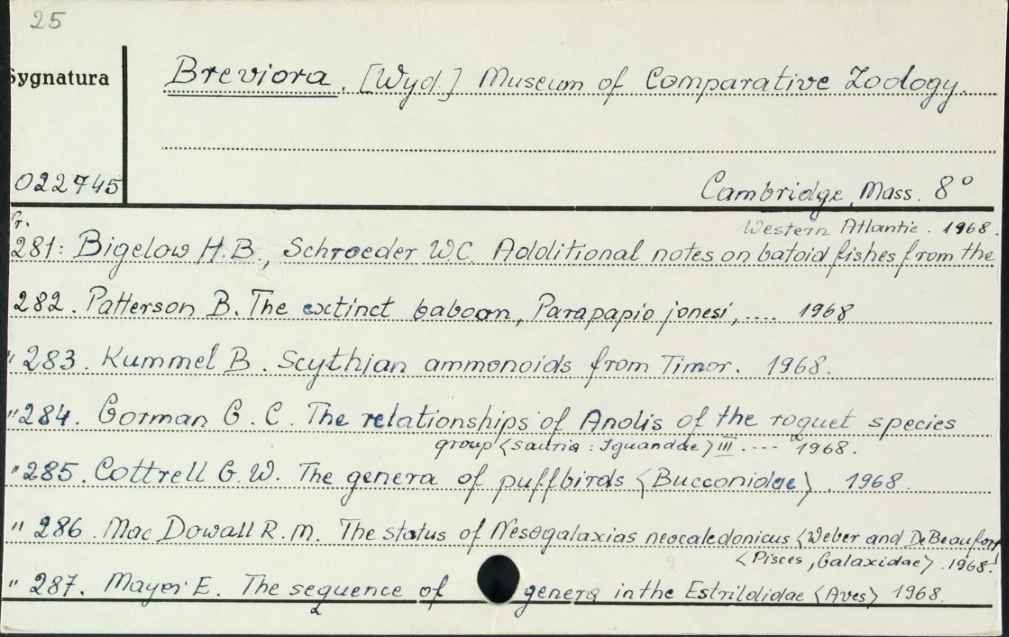 25
Sygnatura
Breviora. [Wyd.] Museum of Comparative Zoology.
022745
Cambridge, Mass. 8°
Western Atlantic. 1968.
281: Bigelow H.B., Schroeder W.C. Additional notes on batoid fishes from the
282. Patterson B. The extinct baboon, Parapapio jonesi,.... 1968
"283. Kummel B. Scythian ammonoids from Timor. 1968.
"284. Gorman G. C. The relationships of Anolis of the roquet species
group <Sauria: Iguandae> III. --- 1968.
"285. Cottrell G. W. The genera of puffbirds <Bucconidae>. 1968.
" 286. Mac Dowall R. M. The status of Nesogalaxias neocaledonicus <Weber and De Beaufort>
<Pisces, Galaxidae>. 1968.
" 287. Mayer E. The sequence of genera in the Estrildidae <Aves> 1968.